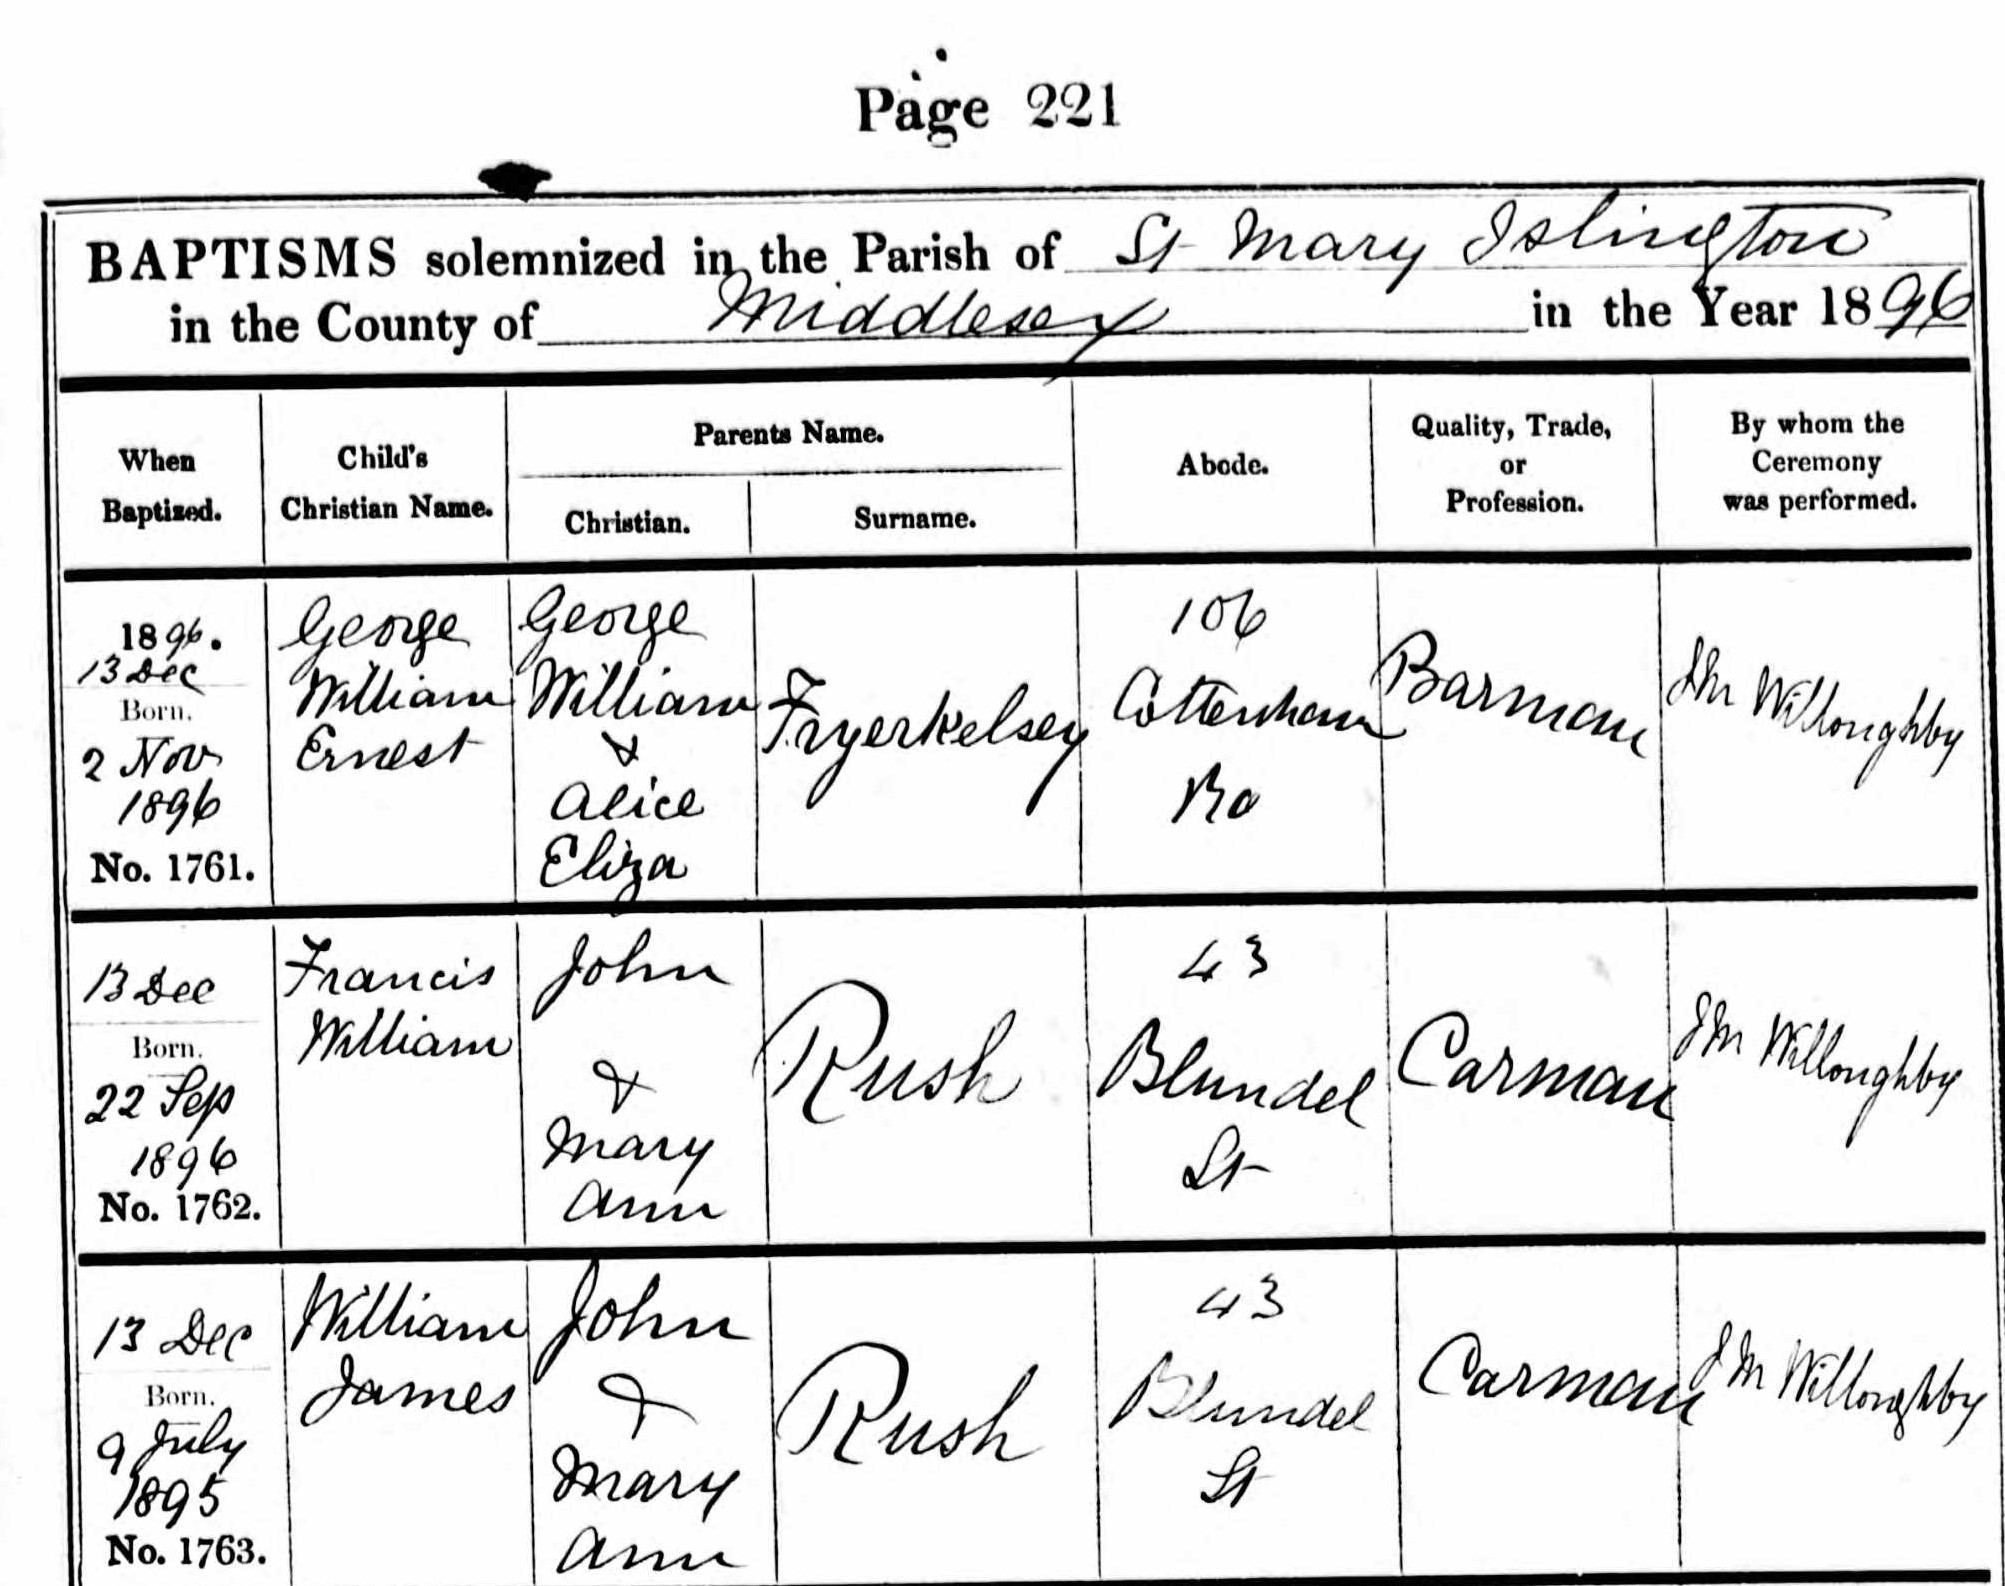 Page 221
BAPTISMS solemnized in the Parish of St Mary Islington
in the County of Middlesex in the Year 1896
When Baptized.
Child's Christian Name.
Parents Name.
Christian.
Surname.
Abode.
Quality, Trade, or Profession.
By whom the Ceremony was performed.
1896.
13 Dec
Born.
2 Nov
1896
No. 1761.
George
William
Ernest
George
William
&
Alice
Eliza
Fryerkelsey
106
Cottenham
Rd
Barman
JM Willoughby
13 Dec
Born.
22 Sep
1896
No. 1762.
Francis
William
John
&
Mary
Ann
Rush
43
Blundel
St
Carman
JM Willoughby
13 Dec
Born.
9 July
1895
No. 1763.
William
James
John
&
Mary
Ann
Rush
43
Blundel
St
Carman
JM Willoughby